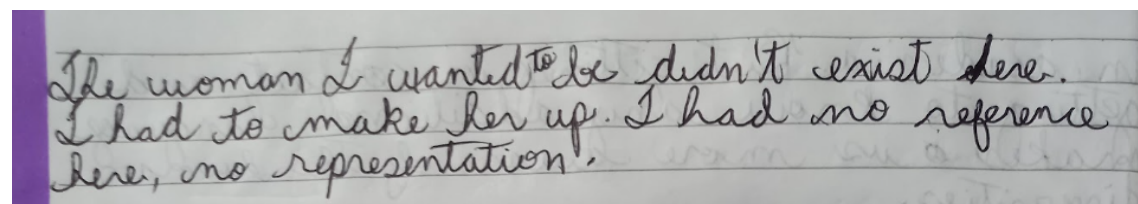 The woman I wanted to be didn't exist here.
I had to make her up. I had no reference
here, no representation.